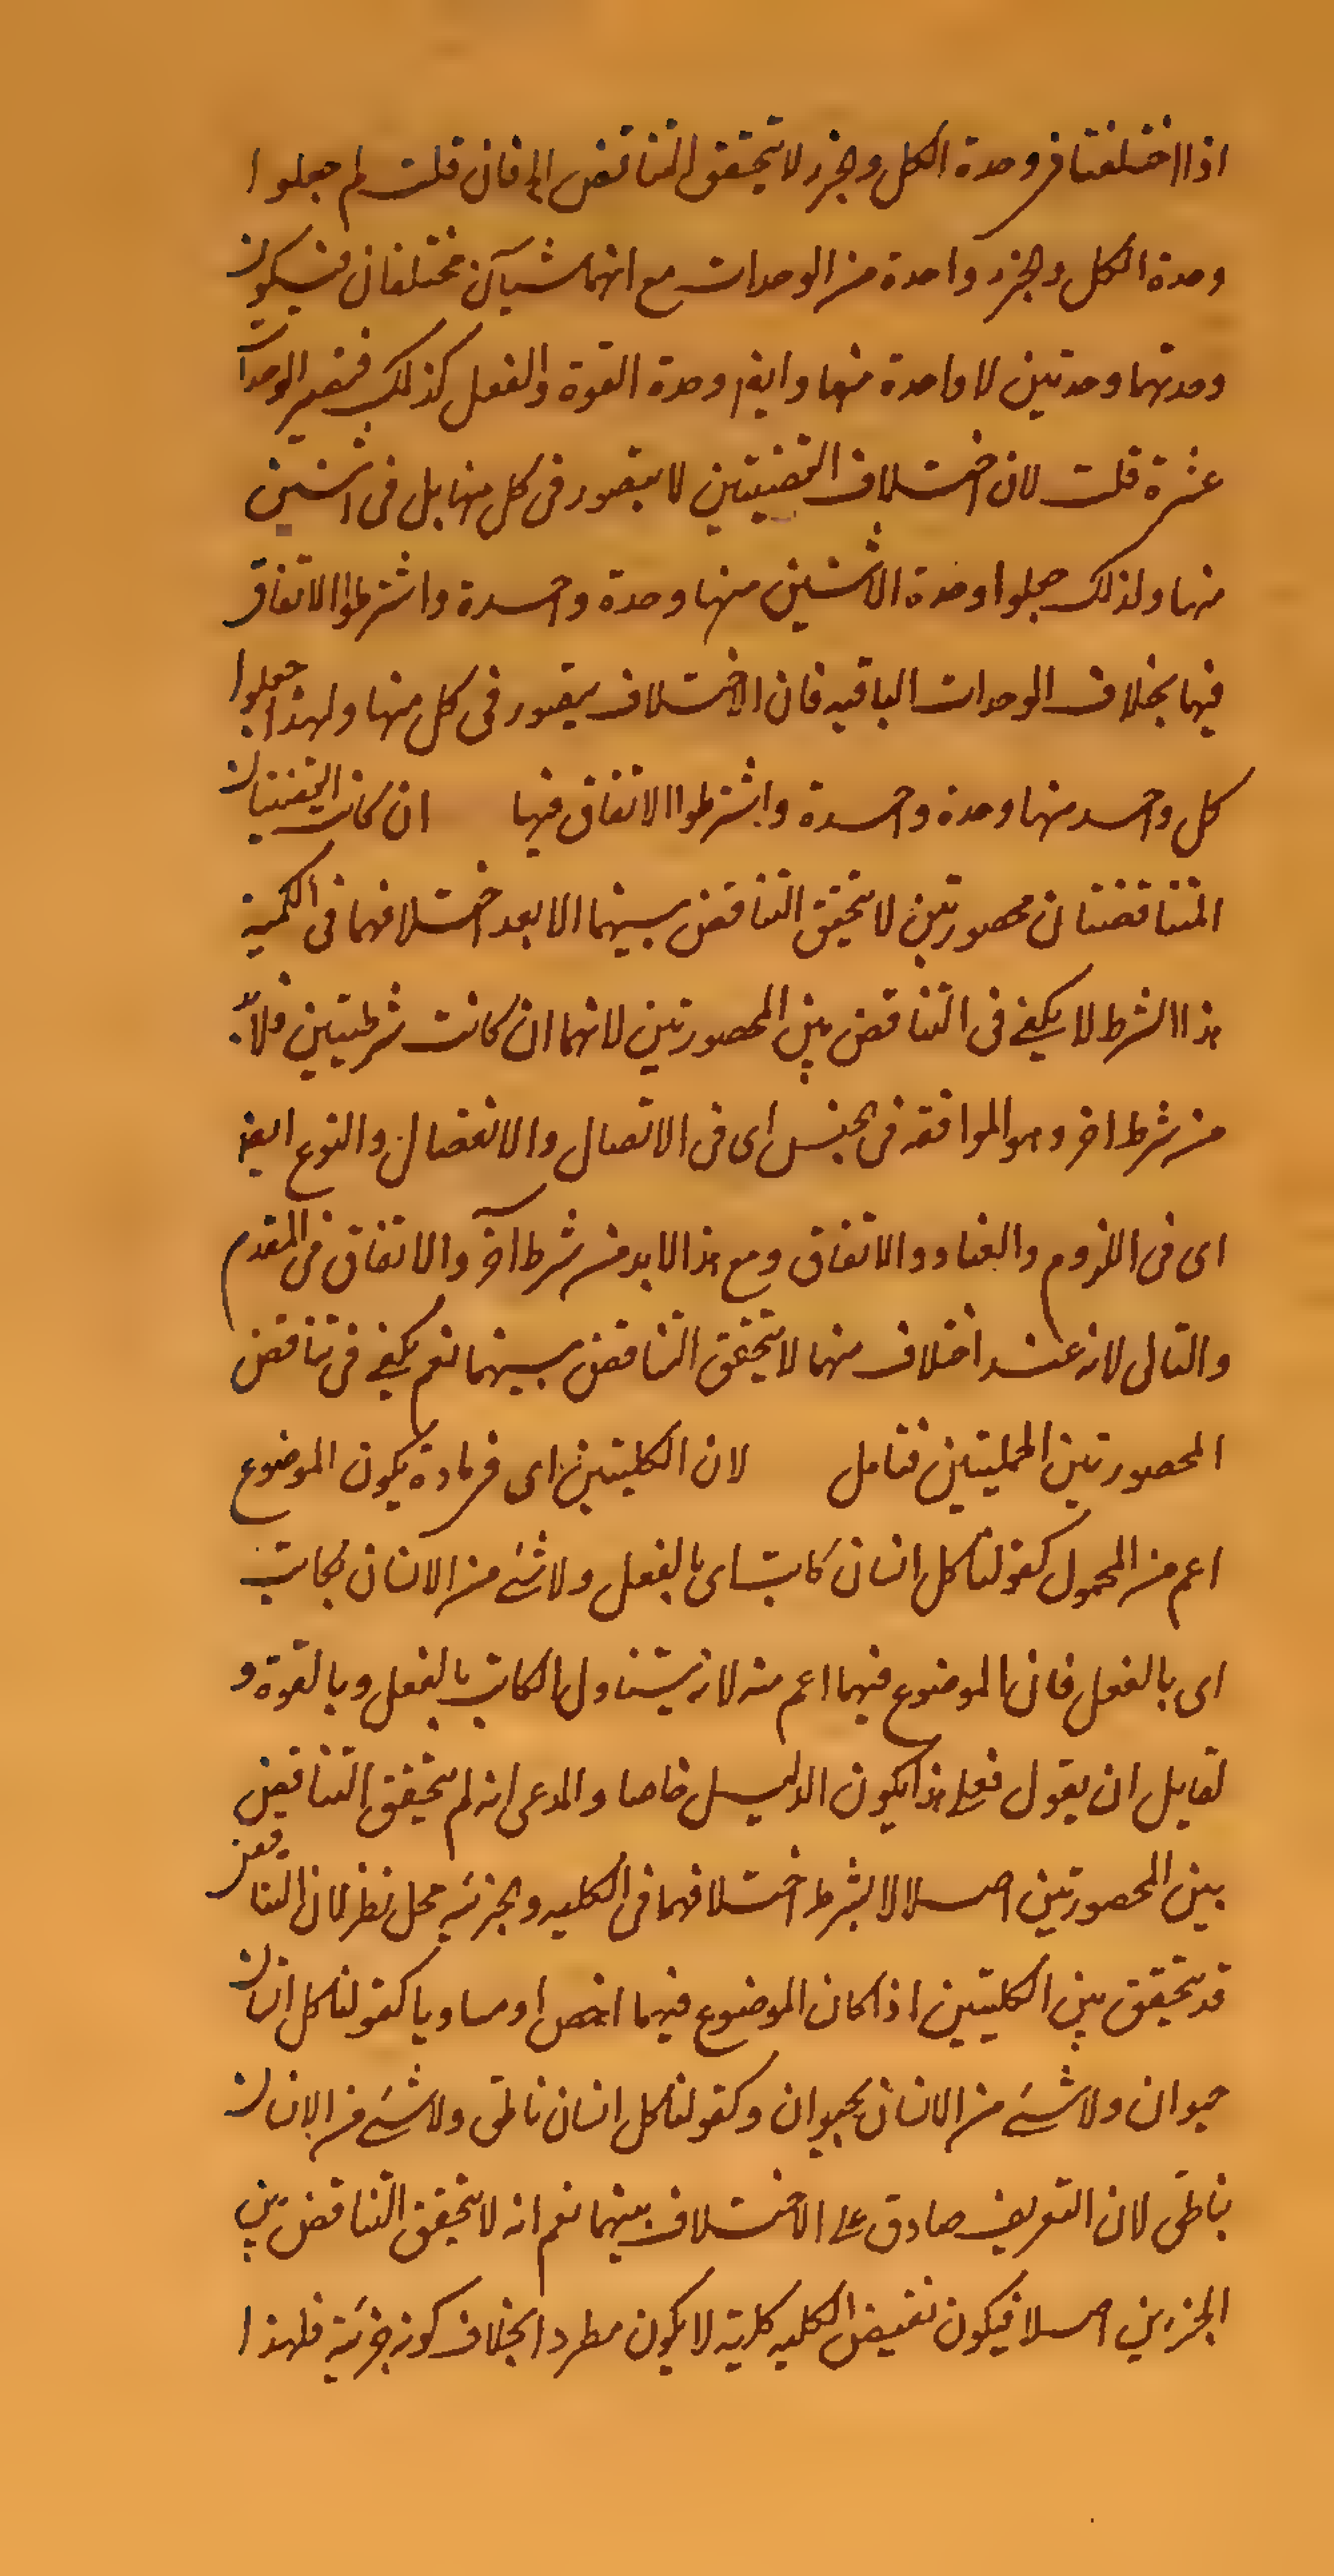 اذا اختلفتا فى وحدة الكل والجزء لا يتحقق التناقض الخ فان قلت لم جعلوا
وحدة الكل والجزء واحدة من الوحدات مع انهما شيآن مختلفان فيكون
وحدتهما وحدتين لا واحدة منها وايضا وحدة القوة والفعل كذلك فتصير الوحدات
عشرة قلت لان اختلاف القضيتين لا يتصور فى كل منها بل فى اثنين
منها ولذلك جعلوا وحدة الاثنين منها وحدة واحدة واشترطوا الاتفاق
فيها بخلاف الوحدات الباقيه فان الاختلاف يتصور فى كل منها ولهذا جعلوا
كل واحد منها وحدة واحدة واشترطوا الاتفاق فيها ان كانت القضيتان
المتناقضتان محصورتين لا يتحقق التناقض بينهما الا بعد اختلافهما فى الكمية
هذا الشرط لا يكفى فى التناقض بين المحصورتين لانهما ان كانت شرطيتين فلا بد
من شرط اخر وهو الموافقه فى الجنس اى فى الاتصال والانفصال والنوع ايضا
اى فى اللزوم والعناد والاتفاق ومع هذا لابد من شرط آخر والاتفاق فى المقدم
والتالى لانه عند اختلاف منهما لا يتحقق التناقض بينهما نعم يكفى فى تناقض
المحصورتين الحمليتين فتامل لان الكليتين اى فى مادة يكون الموضوع
اعم من المحمول كقولنا كل انسان كاتب اى بالفعل ولا شئ من الانسان بكاتب
اى بالفعل فان الموضوع فيهما اعم منه لانه يتناول الكاتب بالفعل وبالقوة و
لقايل ان يقول فعلى هذا يكون الدليل خاصا والمدعى انه لم يتحقق التناقض
بين المحصورتين اصلا الا بشرط اختلافهما فى الكليه والجزئيه محل نظر لان التناقض
قد يتحقق بين الكليتين اذا كان الموضوع فيهما اخص او مساويا كقولنا كل انسان
حيوان ولا شئ من الانسان بحيوان وكقولنا كل انسان ناطق ولا شئ من الانسان
بناطق لان التعريف صادق على الاختلاف بينهما نعم انه لا يتحقق التناقض بين
الجزئين اصلا فيكون نقيض الكليه كلية لا يكون مطردا بخلاف كونه جزئية فلهذا